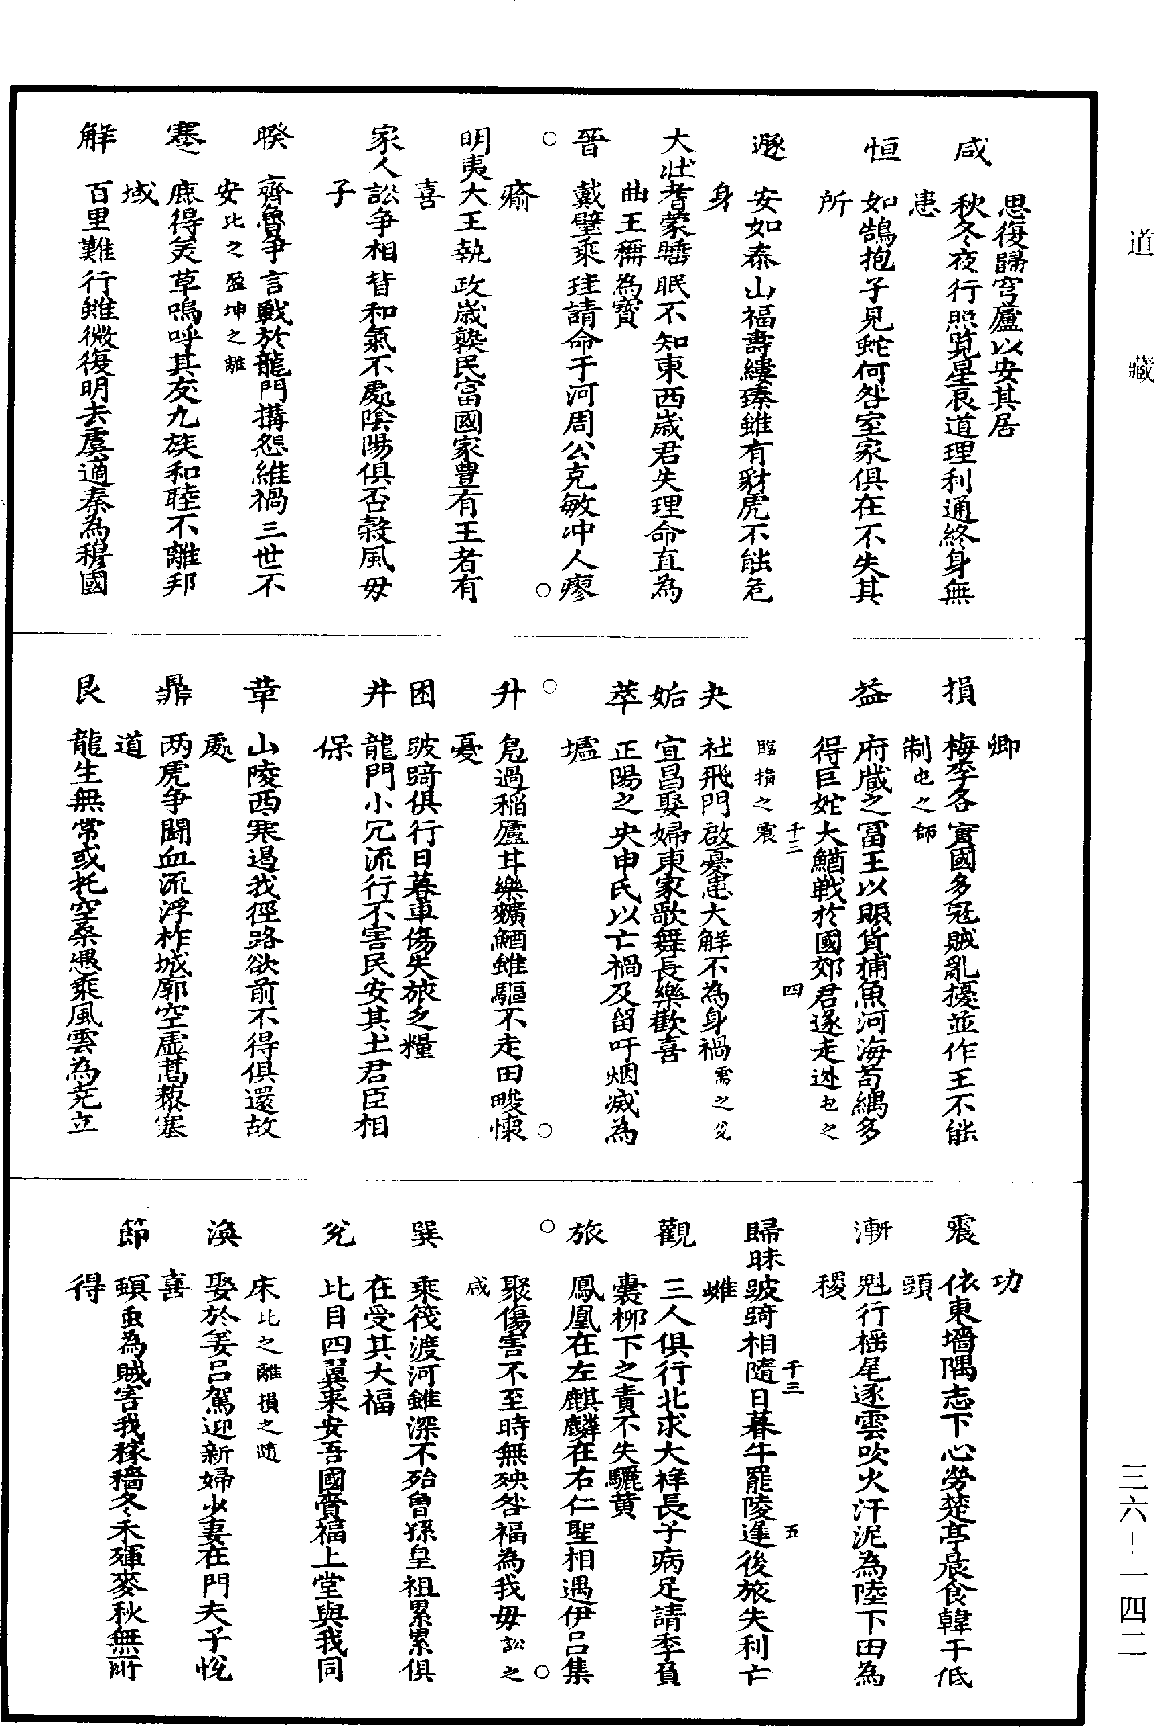 道藏
思復歸穹廬以安其居
咸　秋冬夜行照覽星辰道理利通終身無
患
恒　如鵠抱子見蛇何咎室家俱在不失其
所
遯　安如泰山福壽縷臻雖有豺虎不能危
身
大壯　耆蒙睡眠不知東西歲君失理命直為
曲王稱為寶
晉　戴璧乘珪請命于河周公克敏沖人瘳
瘉
明夷　大王執政歲襲民富國家豊有王者有
喜
家人　訟爭相背和氣不處陰陽俱否榖風毋
子
暌　齊魯爭言戰於龍門搆怨維禍三世不
安比之盈坤之離
蹇　庶得美草嗚呼其友九族和睦不離邦
域
解　百里難行雖微復明去虞適秦為穆國
卿
損　梅李各實國多冦賊亂擾並作王不能
制屯之師
益　府藏之冨王以賑貸捕魚河海苟網多
得巨蛇大鰌戰於國郊君遂走逃屯之
臨損之震
千三　四
夬　社飛門啟憂患大解不為身禍需之兊
姤　宜昌娶婦東家歌舞長樂歡喜
萃　正陽之央申氏以亡禍及留吁烟滅為
墟
升　鳬過稲廬甘樂䵃鰌雖驅不走田畯懷
憂
困　跛踦俱行日暮車傷失旅乏糧
井　龍門小冗流行不害民安其土君臣相
保
革　山陵西寒遏我徑路欲前不得俱還故
處
鼎　两虎爭鬪血流浮杵城廓空虛蒿藜塞
道
艮　龍生無常或托空桑憑乘風雲為尭立
功
震　依東墻隅志下心勞楚亭晨食韓千低
頭
漸　魁行揺尾逐雲吹火汗泥為陸下田為
稷
歸昧　跛踦相隨日暮牛罷陵遲後旅失利亡
雌
千三　五
觀　三人俱行北求大牂長子病足請季負
囊柳下之責不失驪黄
旅　鳳凰在左麒麟在右仁聖相遇伊吕集
聚傷害不至時無殃咎福為我毋訟之
咸
巽　乘筏渡河雖深不殆曾孫皇祖累累俱
在受其大福
兊　比目四翼来安吾國齎福上堂與我同
床比之離損之隨
渙　娶於姜吕駕迎新婦少妻在門夫子恱
喜
節　螟虫為賊害我稼穡冬禾殫麥秋無所
得
三六-一四二